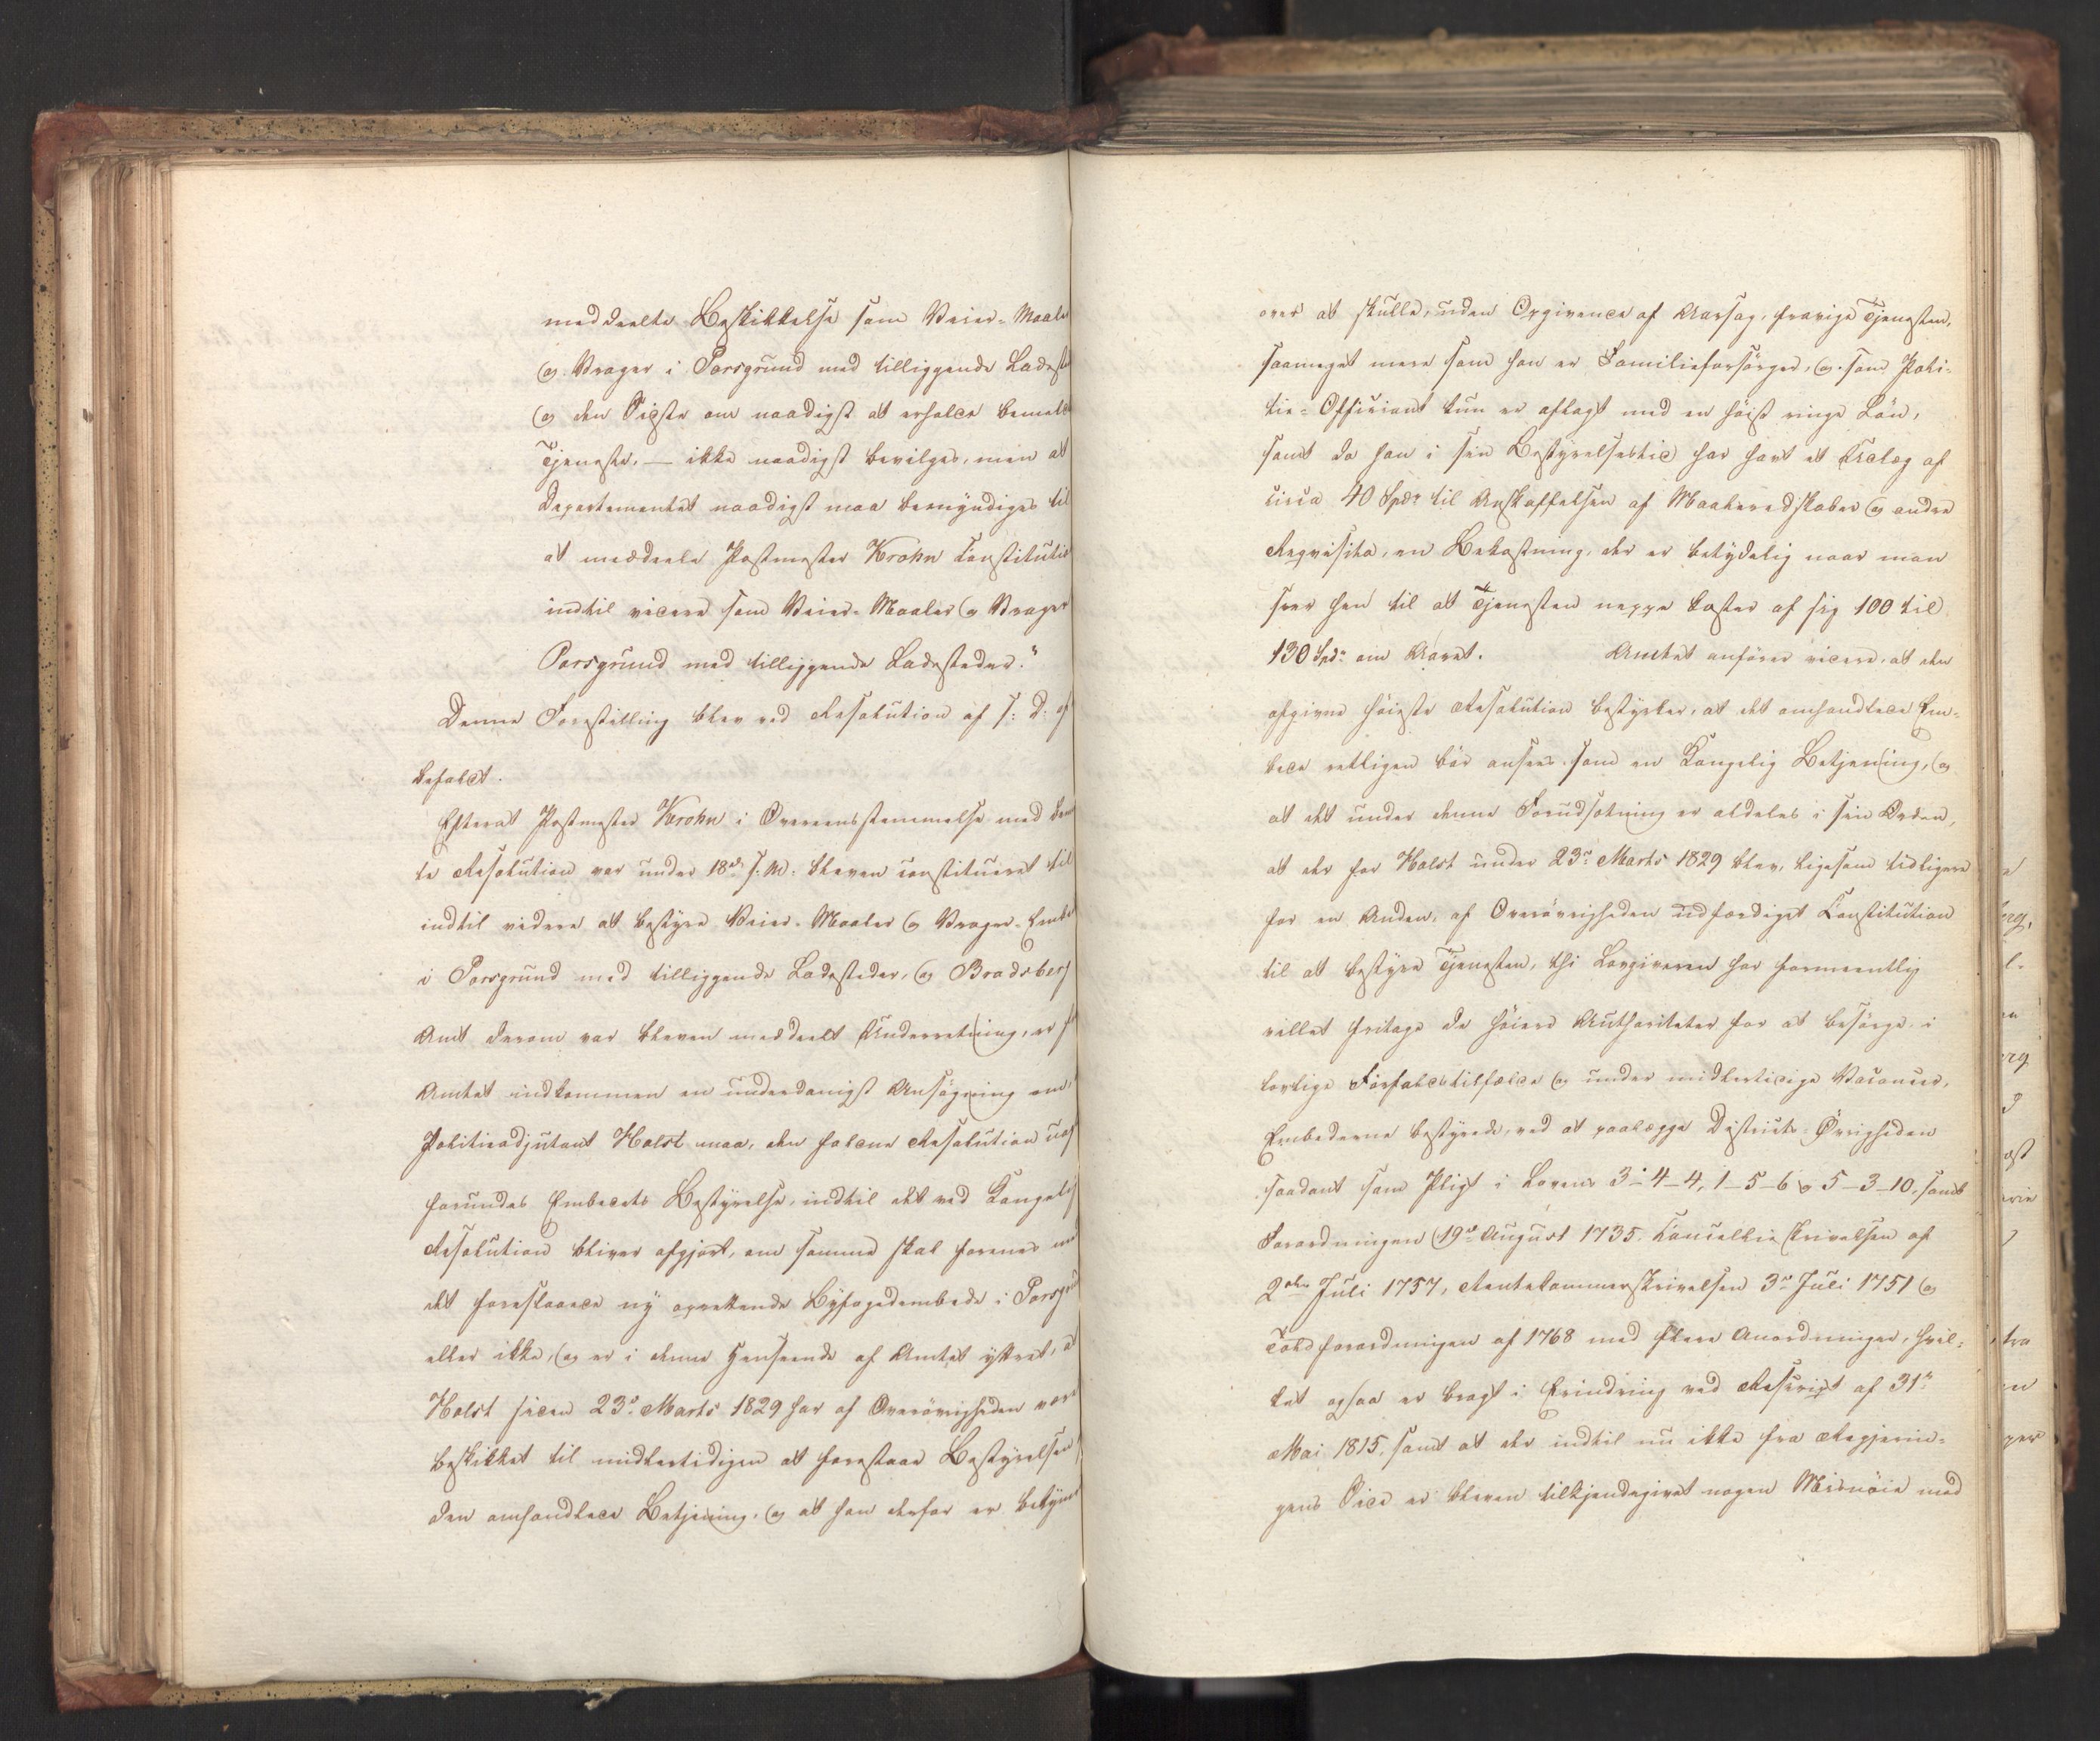 meddeelte Beskikkelse som Veier- Maale
og Vrager i Porsgrund med tilliggende Ladeste
og den Sidste om naadigst at erholde bemeldt
Tjeneste, — ikke naadigst bevilges, men at
Departementet naadigst maa bemyndiges til
at meddeele Postmester Krohn Constitutio
indtil videre som Veier- Maaler og Vrager
Porsgrund med tilliggende Ladesteder."
Denne Forestilling blev ved Resolution af s: D: af
befalet.
Efterat Postmester Krohn i Overeensstemmelse med bem
te Resolution var under 18de s. M. bleven constitueret til
indtil videre at bestyre Veier- Maaler og Vrager- Embe
i Porsgrund med tilliggende Ladesteder, og Bradsberg
Amt derom var bleven meddeelt Underretning, er f
Amtet indkommen en underdanigst Ansøgning om,
Politieadjutant Holst maa, den faldne Resolution uaf
forundes Embedets Bestyrelse, indtil det ved Kongelig
Resolution bliver afgjort, om samme skal forenes me
det foreslaaede ny oprettende Byfogedembede i Porsgru
eller ikke, og er i denne Henseende af Amtet yttret, a
Holst siden 23de Marts 1829 har af Overøvrigheden være
beskikket til midlertidigen at forestaae Bestyrelsen
den omhandlede Betjening, og at han derfor er bekym
over at skulle, uden Opgivende af Aarsag, fravige Tjenesten,
saameget mere som han er Familieforsørger, og som Poli-
tie-Officiant kun er aflagt med en høist ringe Løn,
samt da han i sin Bestyrelsestid har havt et Udlæg af
circa 40 Spdr til Anskaffelsen af Maaleredskaber og andre
Reqvisita, en Bekostning, der er betydelig naar man
seer hen til at Tjenesten neppe kaster af sig 100 til
130 Spdr om Aaret. Amtet anfører videre, at den
afgivne høieste Resolution bestyrker, at det omhandlede Em-
bede rettigen bør ansees som en Kongelig Betjening, og
at det under denne Forudsætning er aldeles i sin Orden,
at der for Holst under 23de Marts 1829 blev, ligesom tidligere
for en Anden, af Overøvrigheden udfærdiget Constitution
til at bestyre Tjenesten, thi Lovgiveren har formeentlig
villet fritage de høiere Authoriteter for at besørge, i
lovlige Forfaldstilfælde og under midlertidige Vacancer,
Embederne bestyrede, ved at paalægge Districts-Øvrigheden
saadant som Pligt i Lovens 3-4-4, 1-5-6 og 5-3-10, samt
Forordningen 19de August 1735, Cancellie Skrivelsen af
2den Juli 1757, Rentekammerskrivelsen 3de Juli 1751 og
Toldforordningen af 1768 med flere Anordninger, hvil-
ket ogsaa er bragt i Erindring ved Rescript af 31te
Mai 1815, samt at der indtil nu ikke fra Regjerin-
gens Side er bleven tilkjendegivet nogen Misnøie med